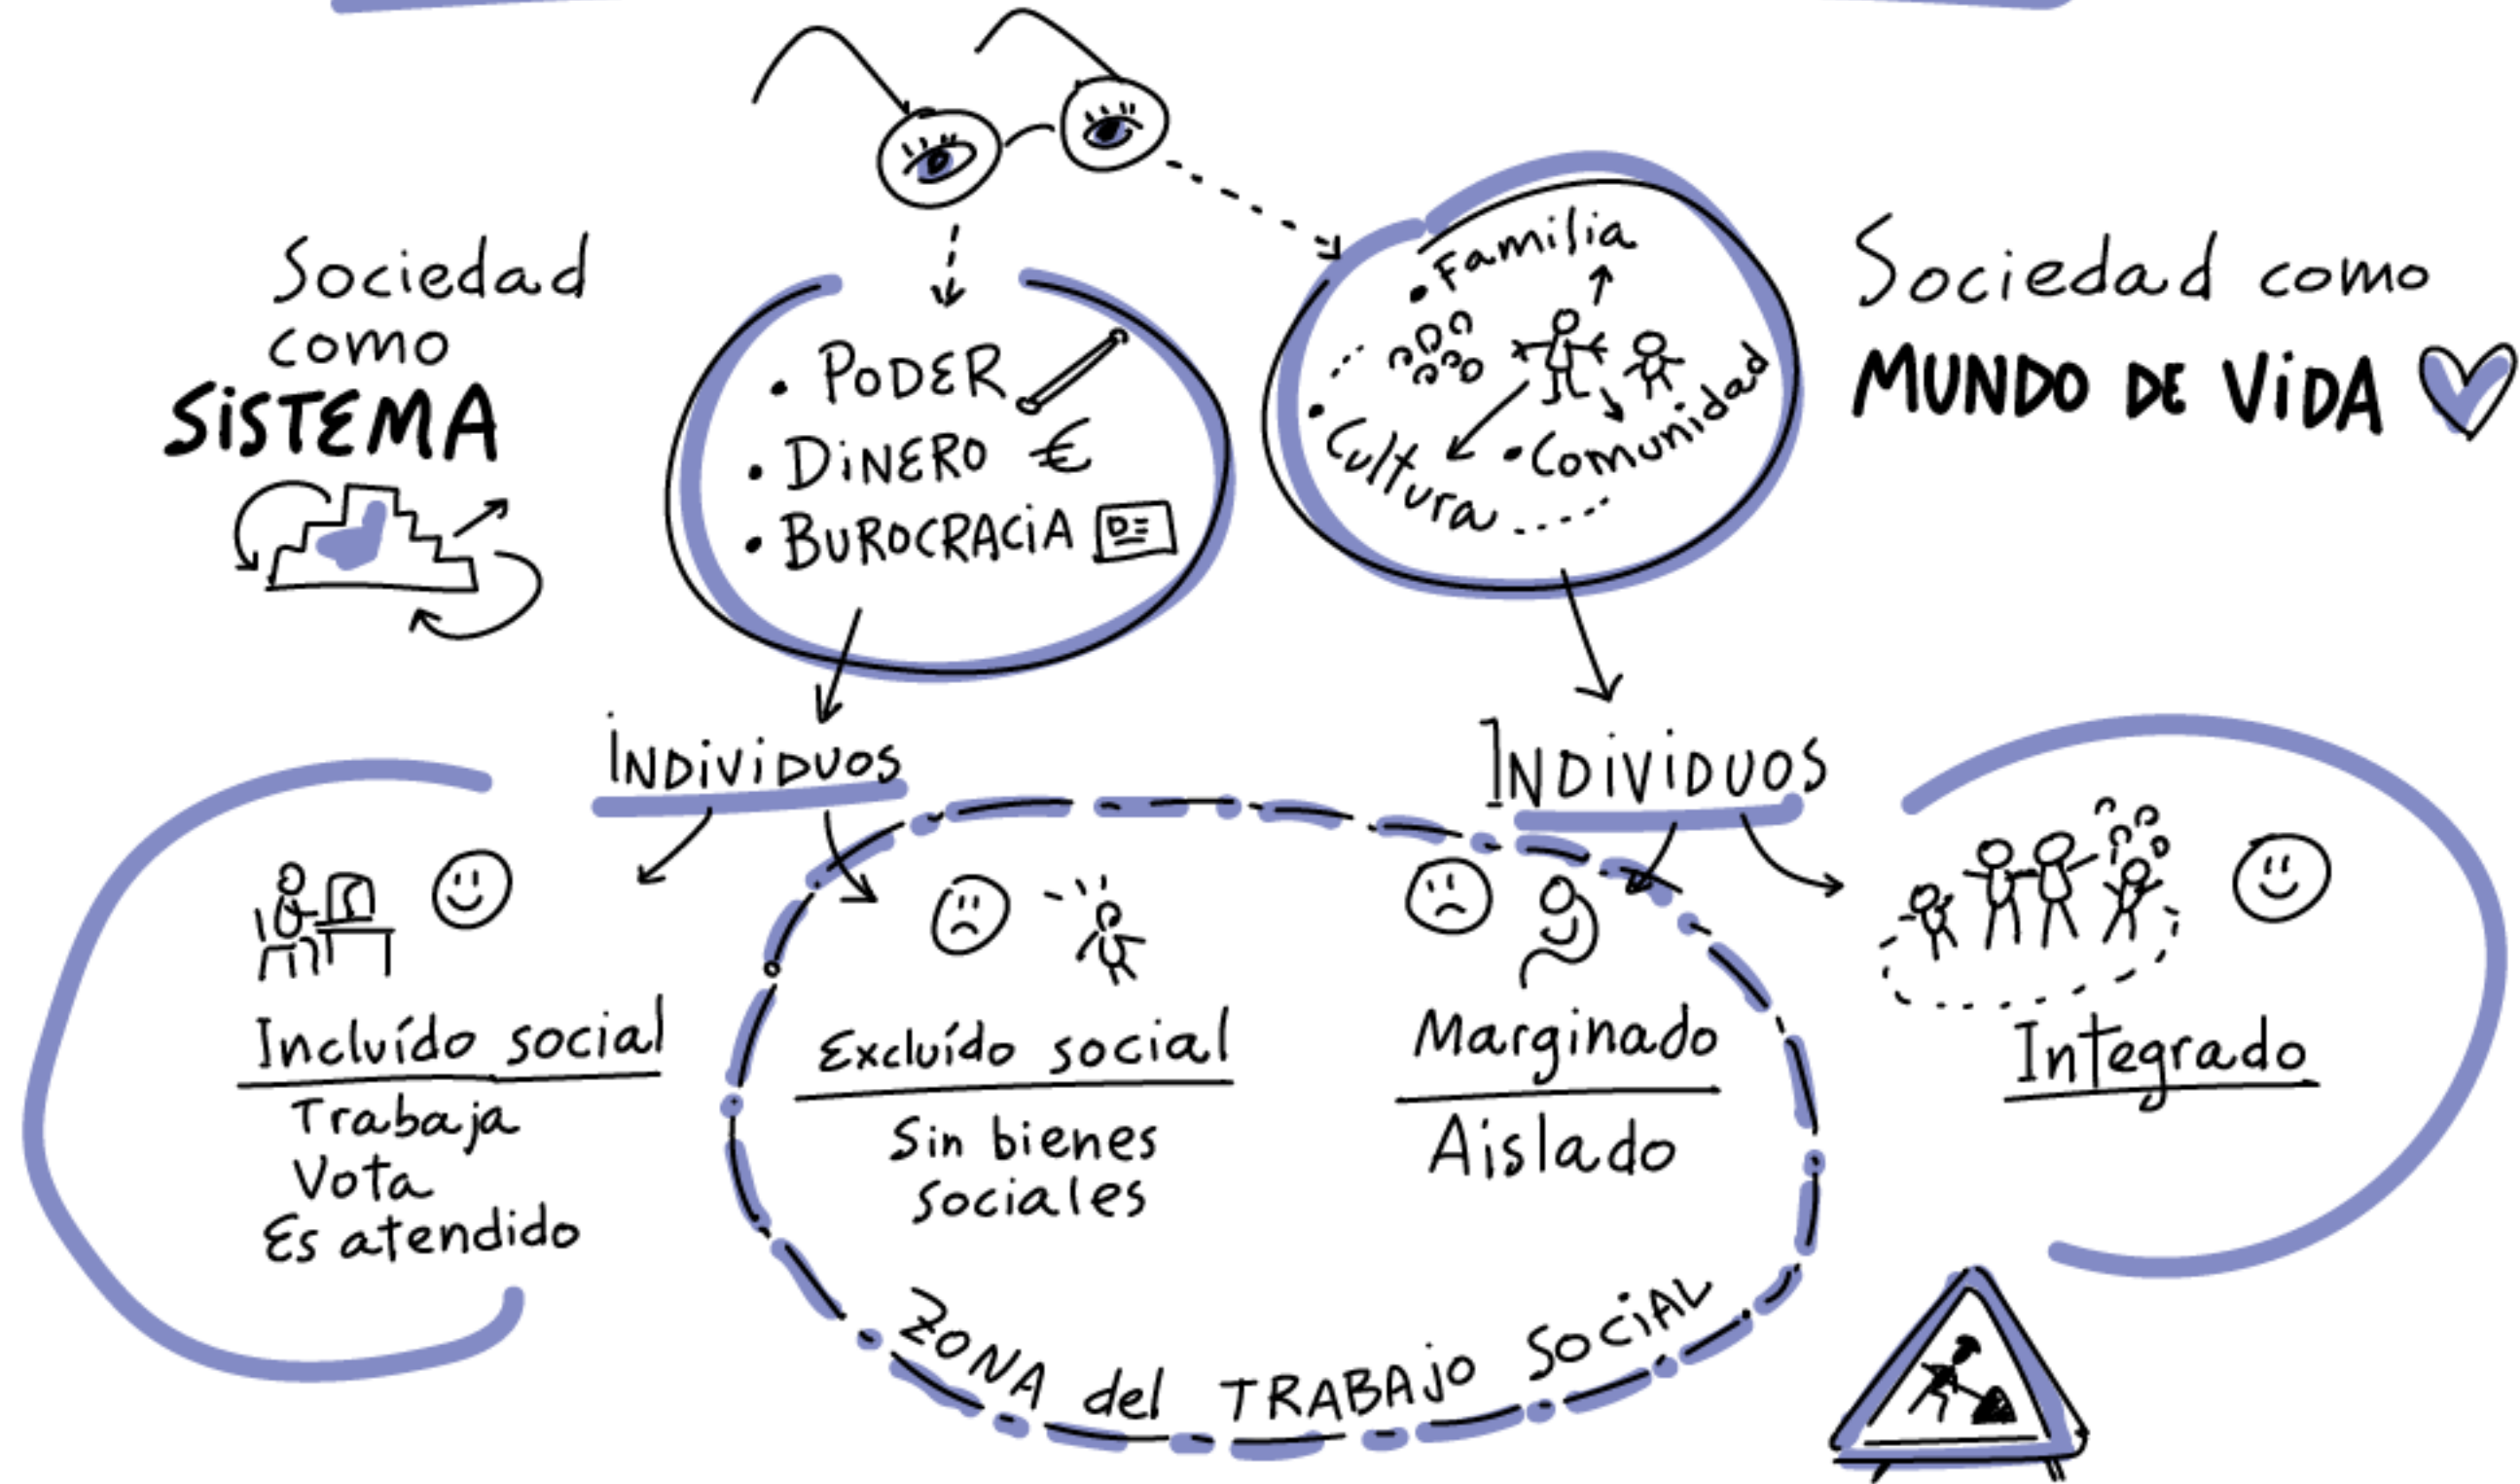 Sociedad
como
SiSTEMA
• PODER
• DiNERO €
• BUROCRACiA
• Familia
• Comunidad
• Cultura
Sociedad como
MUNDO DE ViDA
INDiViDUOS
INDiViDUOS
Incluído social
Trabaja
Vota
Es atendido
Excluído social
Sin bienes
sociales
Marginado
Aislado
Integrado
ZONA del TRABAJO SOCiAL